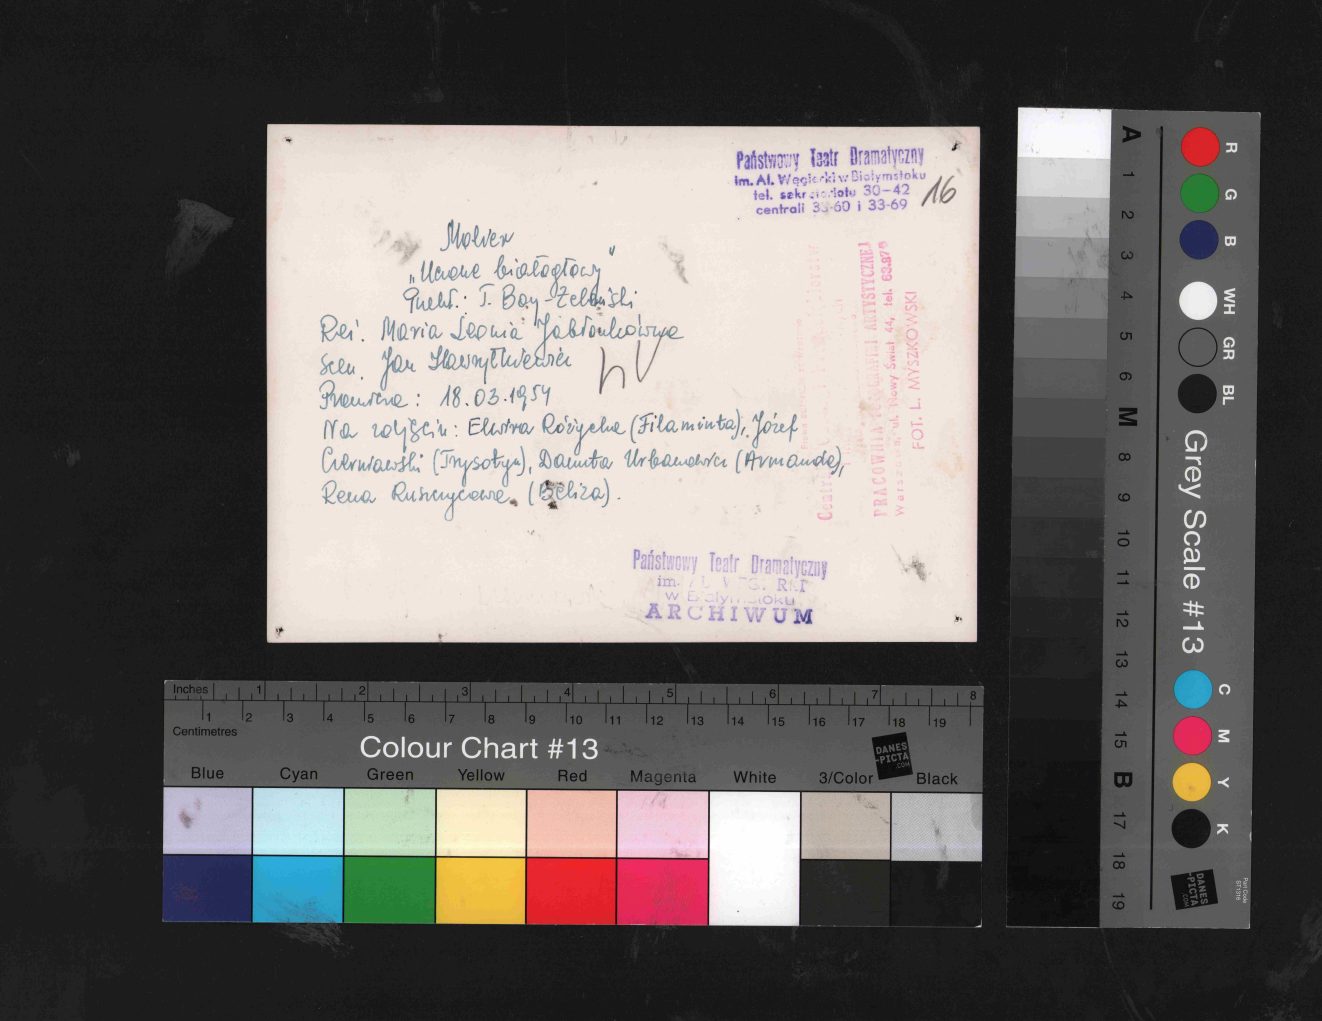 Państwowy Teatr Dramatyczny
im. Al. Węgierki w Białymstoku
tel. sekretariatu 30-42
centrali 33-60 i 33-69
16
Molier
„Uczone białogłowy"
Przekł.: T. Boy-Żeleński
Reż. Maria Leonia Jabłonkówna
Scen. Jan Hawryłkiewicz
Premiera: 18.03.1954
Na zdjęciu: Elwira Różycka (Filaminta), Józef
Czerniawski (Trysotyn), Danuta Urbanowicz (Armanda),
Rena Ruszczycowa (Beliza).
PRACOWNIA FOTOGRAFII ARTYSTYCZNEJ
Warszawa, ul. Nowy Świat 44, tel. 63.875
FOT. L. MYSZKOWSKI
Państwowy Teatr Dramatyczny
im. AL. WĘGIERKI
w Białymstoku
ARCHIWUM
Inches 1 2 3 4 5 6 7 8
1 2 3 4 5 6 7 8 9 10 11 12 13 14 15 16 17 18 19
Centimetres
Colour Chart #13
DANES
-PICTA
.COM
Blue Cyan Green Yellow Red Magenta White 3/Color Black
A 1 2 3 4 5 6 M 8 9 10 11 12 13 14 15 B 17 18 19
R G B WH GR BL
Grey Scale #13
C M Y K
DANES
-PICTA
.COM
Part Code
ST1316